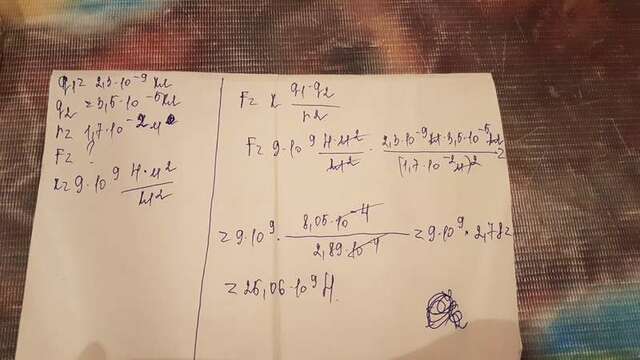 q1 = 2,3·10⁻⁹ Кл
q2 = 3,5·10⁻⁵ Кл
r = 1,7·10⁻² м
F = ?
k = 9·10⁹ Н·м²/Кл²
F = k q1·q2/r²
F = 9·10⁹ Н·м²/Кл² · 2,3·10⁻⁹ Кл·3,5·10⁻⁵ Кл/(1,7·10⁻² м)² =
= 9·10⁹ · 8,05·10⁻⁴/2,89·10⁻⁴ = 9·10⁹ · 2,78 =
= 25,06·10⁹ Н.